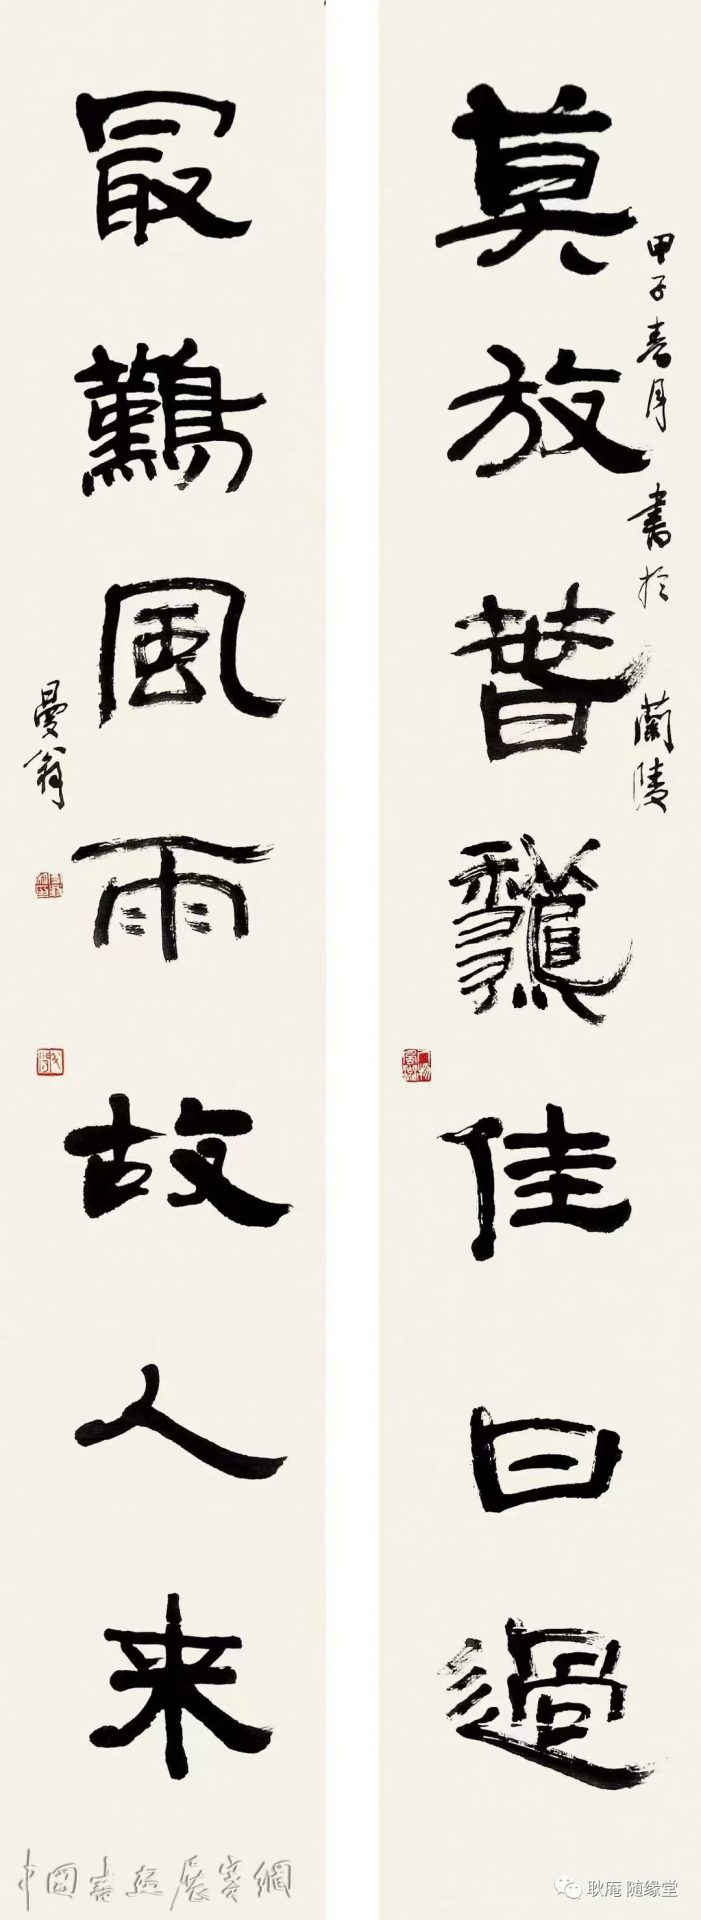 莫放萅龝佳日過
甲子春月 書於 蘭陵
冣難風雨故人来
曼翁
中國書畫展賽網
耿庵 随缘堂